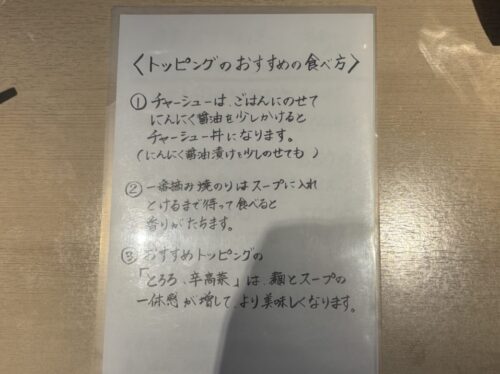 〈トッピングのおすすめの食べ方〉
① チャーシューは、ごはんにのせて
にんにく醤油を少しかけると
チャーシュー丼になります。
(にんにく醤油漬けを少しのせても)
② 一番摘み焼のりはスープに入れ
とけるまで待って食べると
香りがたちます。
③ おすすめトッピングの
「とろろ、辛高菜」は、麺とスープの
一体感が増して、より美味しくなります。